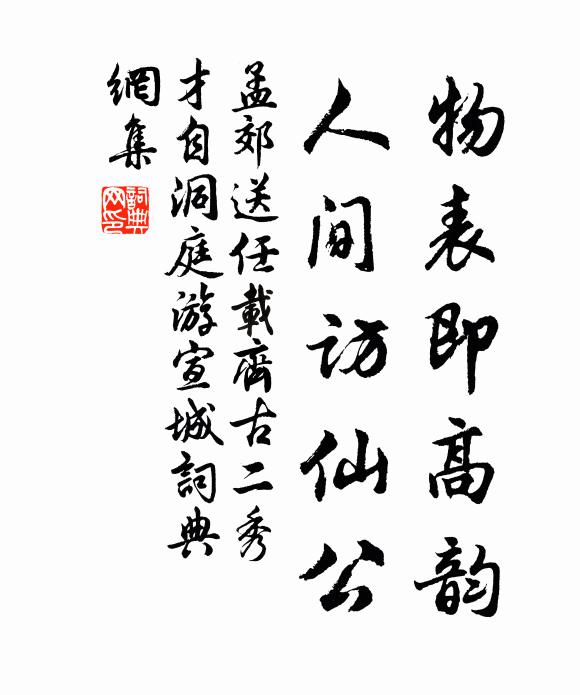 物表即高韵
人间访仙公
孟郊送任載齊古二秀
才自洞庭游宣城詞典
網集
詞典网印